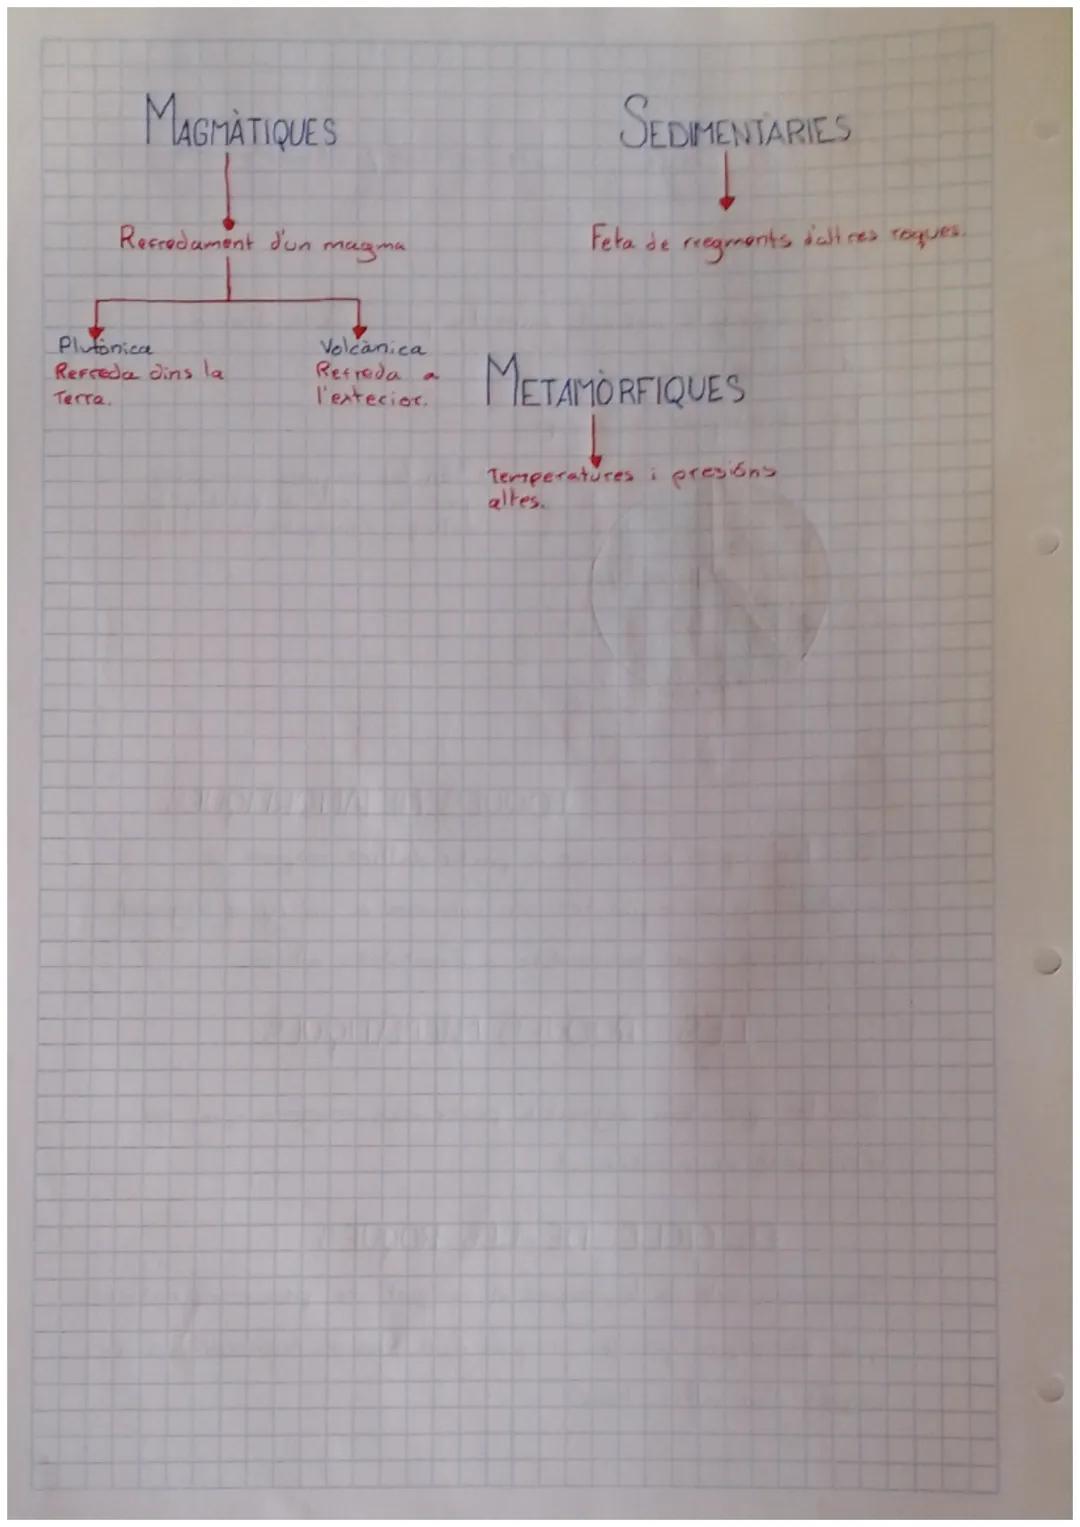 MAGMÀTIQUES
Refredament d'un magma
Plutònica
Refreda dins la
Terra.
Volcànica
Refreda a
l'exterior.
SEDIMENTÀRIES
Feta de fregments d'altres roques.
METAMÒRFIQUES
Temperatures i presións
altes.